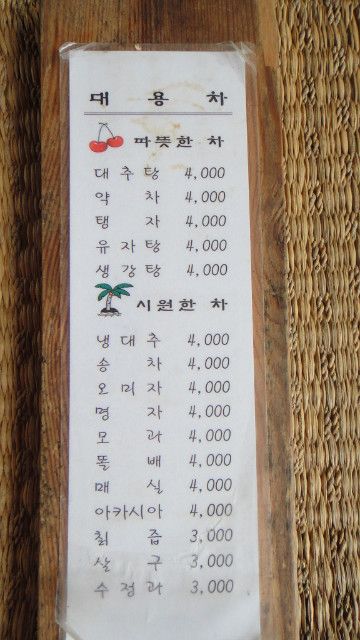 대 용 차
따뜻한 차
대 추 탕 4,000
약 차 4,000
탱 자 4,000
유 자 탕 4,000
생 강 탕 4,000
시원한 차
냉 대 추 4,000
송 차 4,000
오 미 자 4,000
명 자 4,000
모 과 4,000
똘 배 4,000
매 실 4,000
아카시아 4,000
칡 즙 3,000
살 구 3,000
수 정 과 3,000